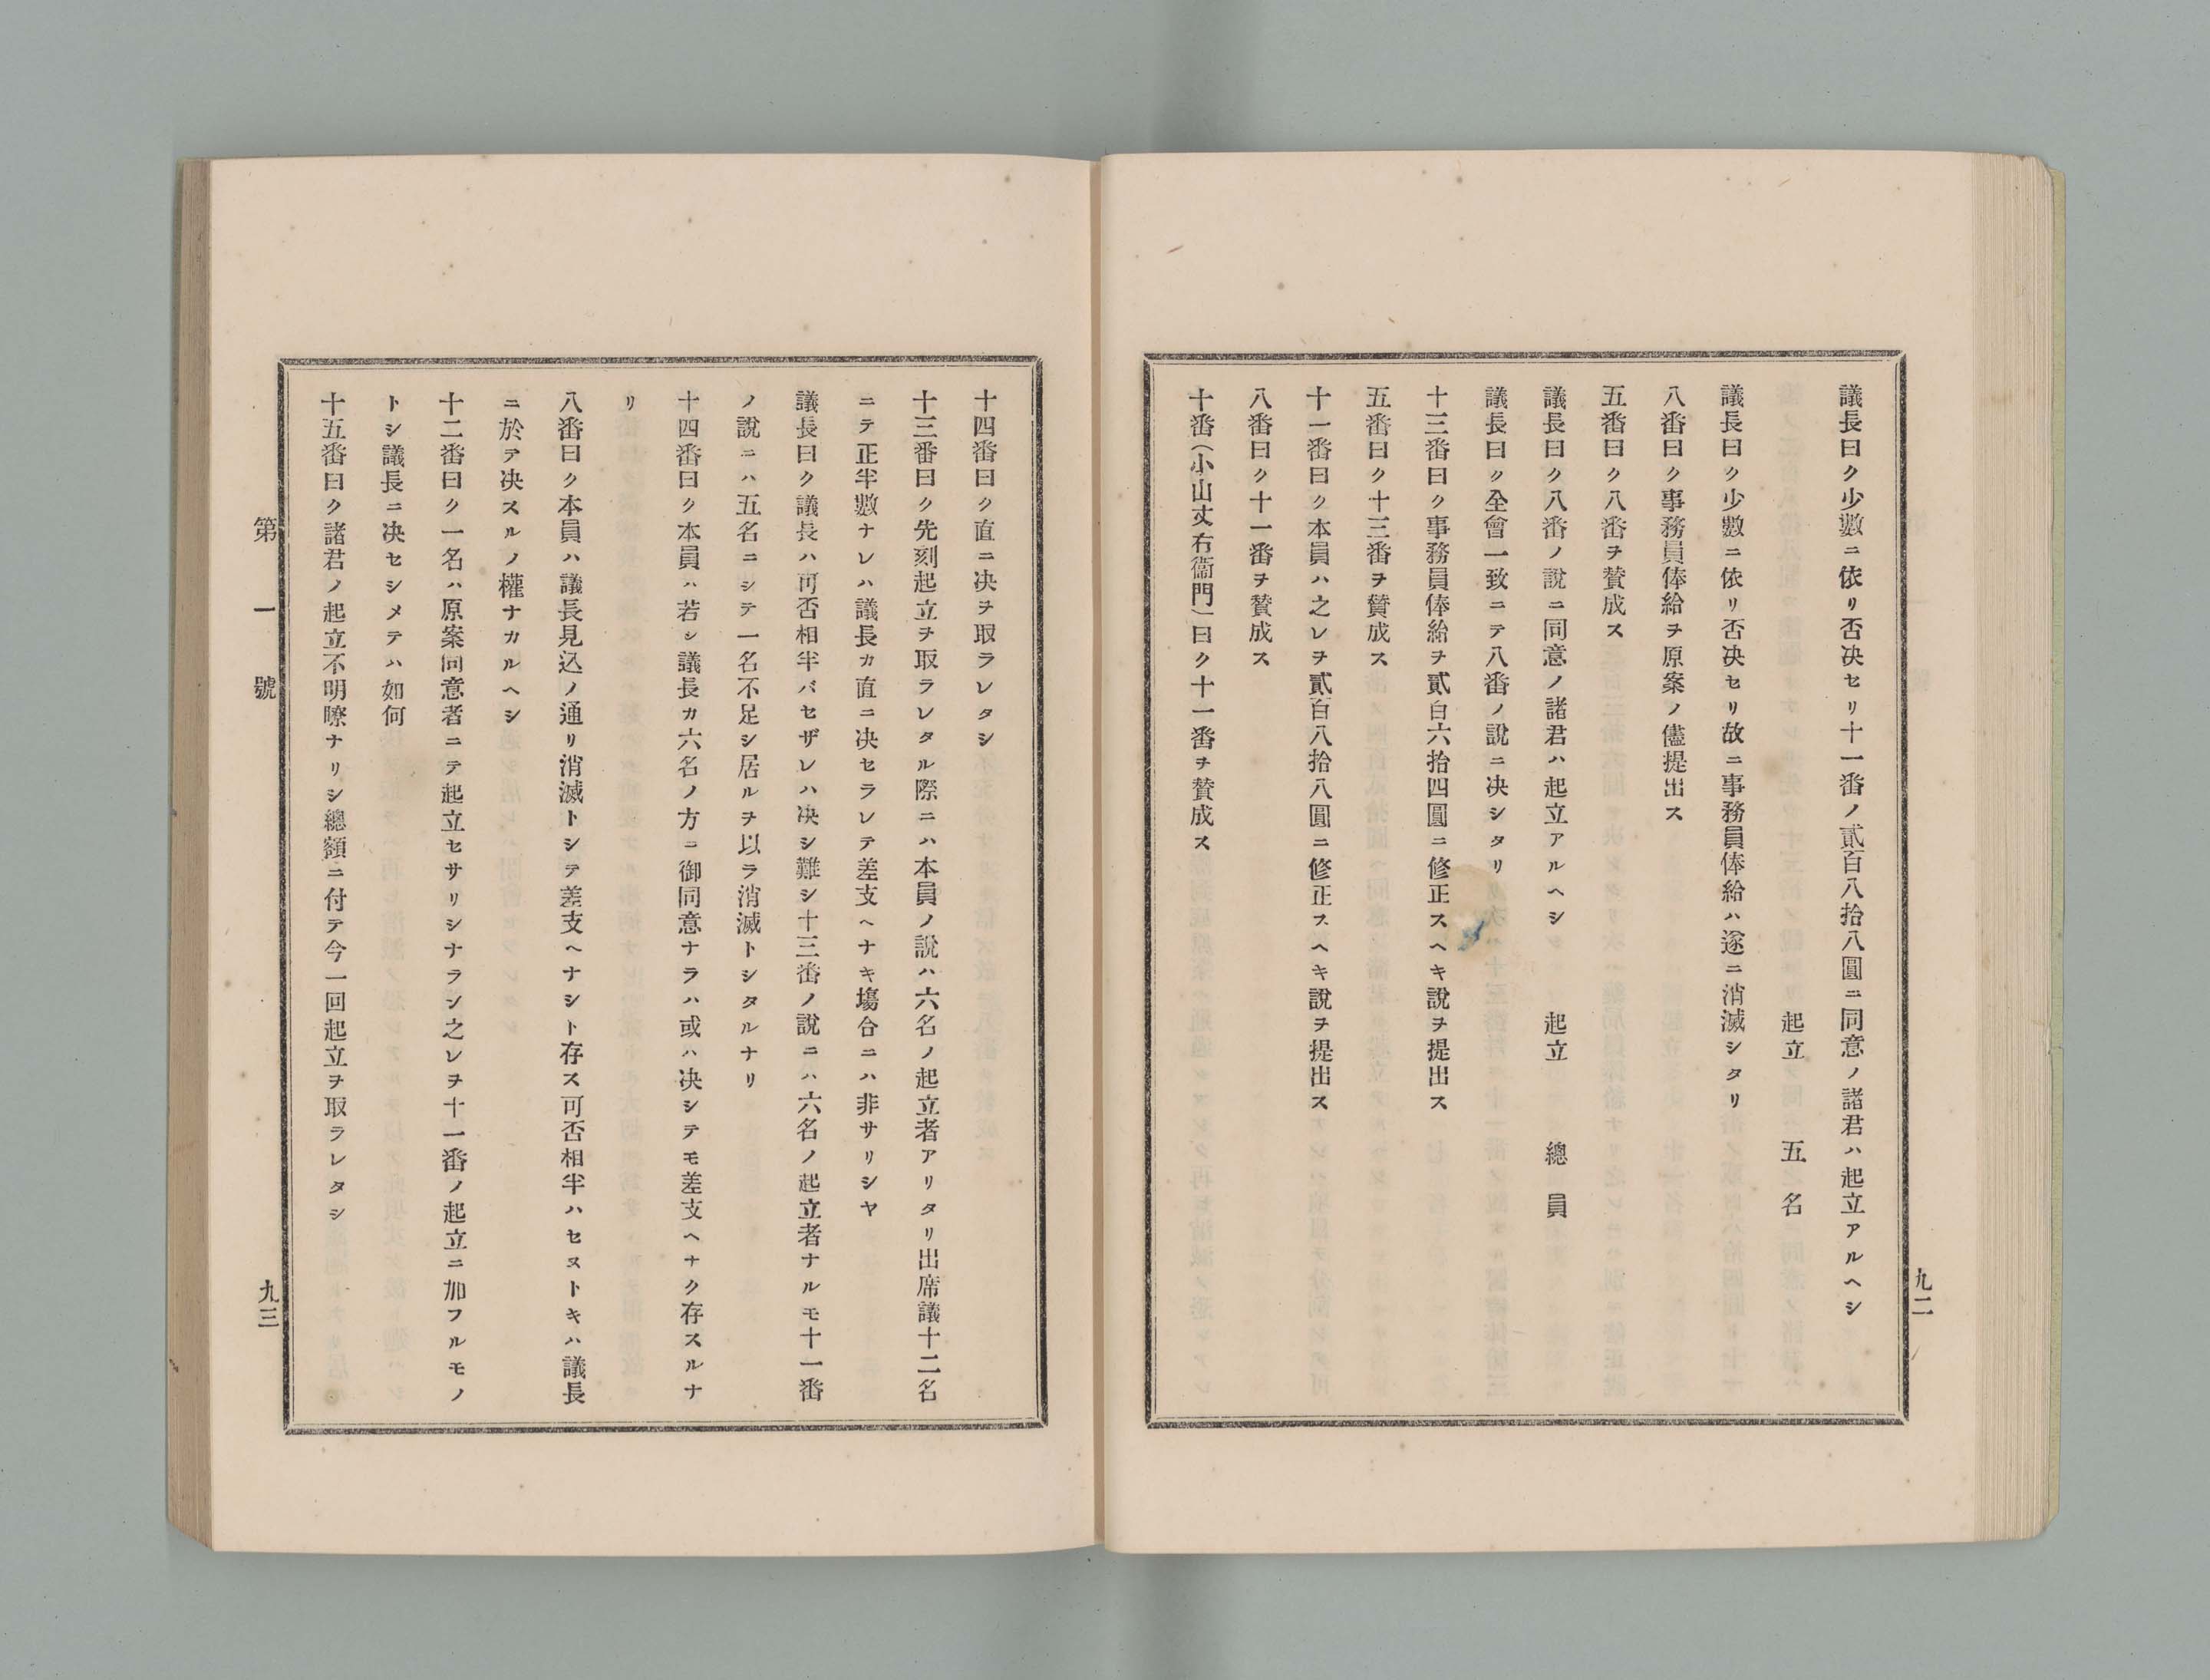 議長曰ク少數ニ依リ否决セリ十一番ノ貳百八拾八圓ニ同意ノ諸君ハ起立アルヘシ
起立　五名
議長曰ク少數ニ依リ否决セリ故ニ事務員俸給ハ遂ニ消滅シタリ
八番曰ク事務員俸給ヲ原案ノ儘提出ス
五番曰ク八番ヲ賛成ス
議長曰ク八番ノ說ニ同意ノ諸君ハ起立アルヘシ
起立　總員
議長曰ク全會一致ニテ八番ノ說ニ决シタリ
十三番曰ク事務員俸給ヲ貳百六拾四圓ニ修正スヘキ說ヲ提出ス
五番曰ク十三番ヲ賛成ス
十一番曰ク本員ハ之レヲ貳百八拾八圓ニ修正スヘキ說ヲ提出ス
八番曰ク十一番ヲ賛成ス
十番(小山丈右衞門)曰ク十一番ヲ賛成ス
九二
十四番曰ク直ニ决ヲ取ラレタシ
十三番曰ク先刻起立ヲ取ラレタル際ニハ本員ノ說ハ六名ノ起立者アリタリ出席議十二名
ニテ正半數ナレハ議長カ直ニ决セラレテ差支ヘナキ塲合ニハ非サリシヤ
議長曰ク議長ハ可否相半バセザレハ决シ難シ十三番ノ說ニハ六名ノ起立者ナルモ十一番
ノ說ニハ五名ニシテ一名不足シ居ルヲ以ラ消滅トシタルナリ
十四番曰ク本員ハ若シ議長カ六名ノ方ニ御同意ナラハ或ハ决シテモ差支ヘナク存スルナ
リ
八番曰ク本員ハ議長見込ノ通リ消滅トシテ差支ヘナシト存ス可否相半ハセストキハ議長
ニ於テ决スルノ權ナカルヘシ
十二番曰ク一名ハ原案同意者ニテ起立セサリシナラン之レヲ十一番ノ起立ニ加フルモノ
トシ議長ニ决セシメテハ如何
十五番曰ク諸君ノ起立不明瞭ナリシ總額ニ付テ今一回起立ヲ取ラレタシ
第一號
九三